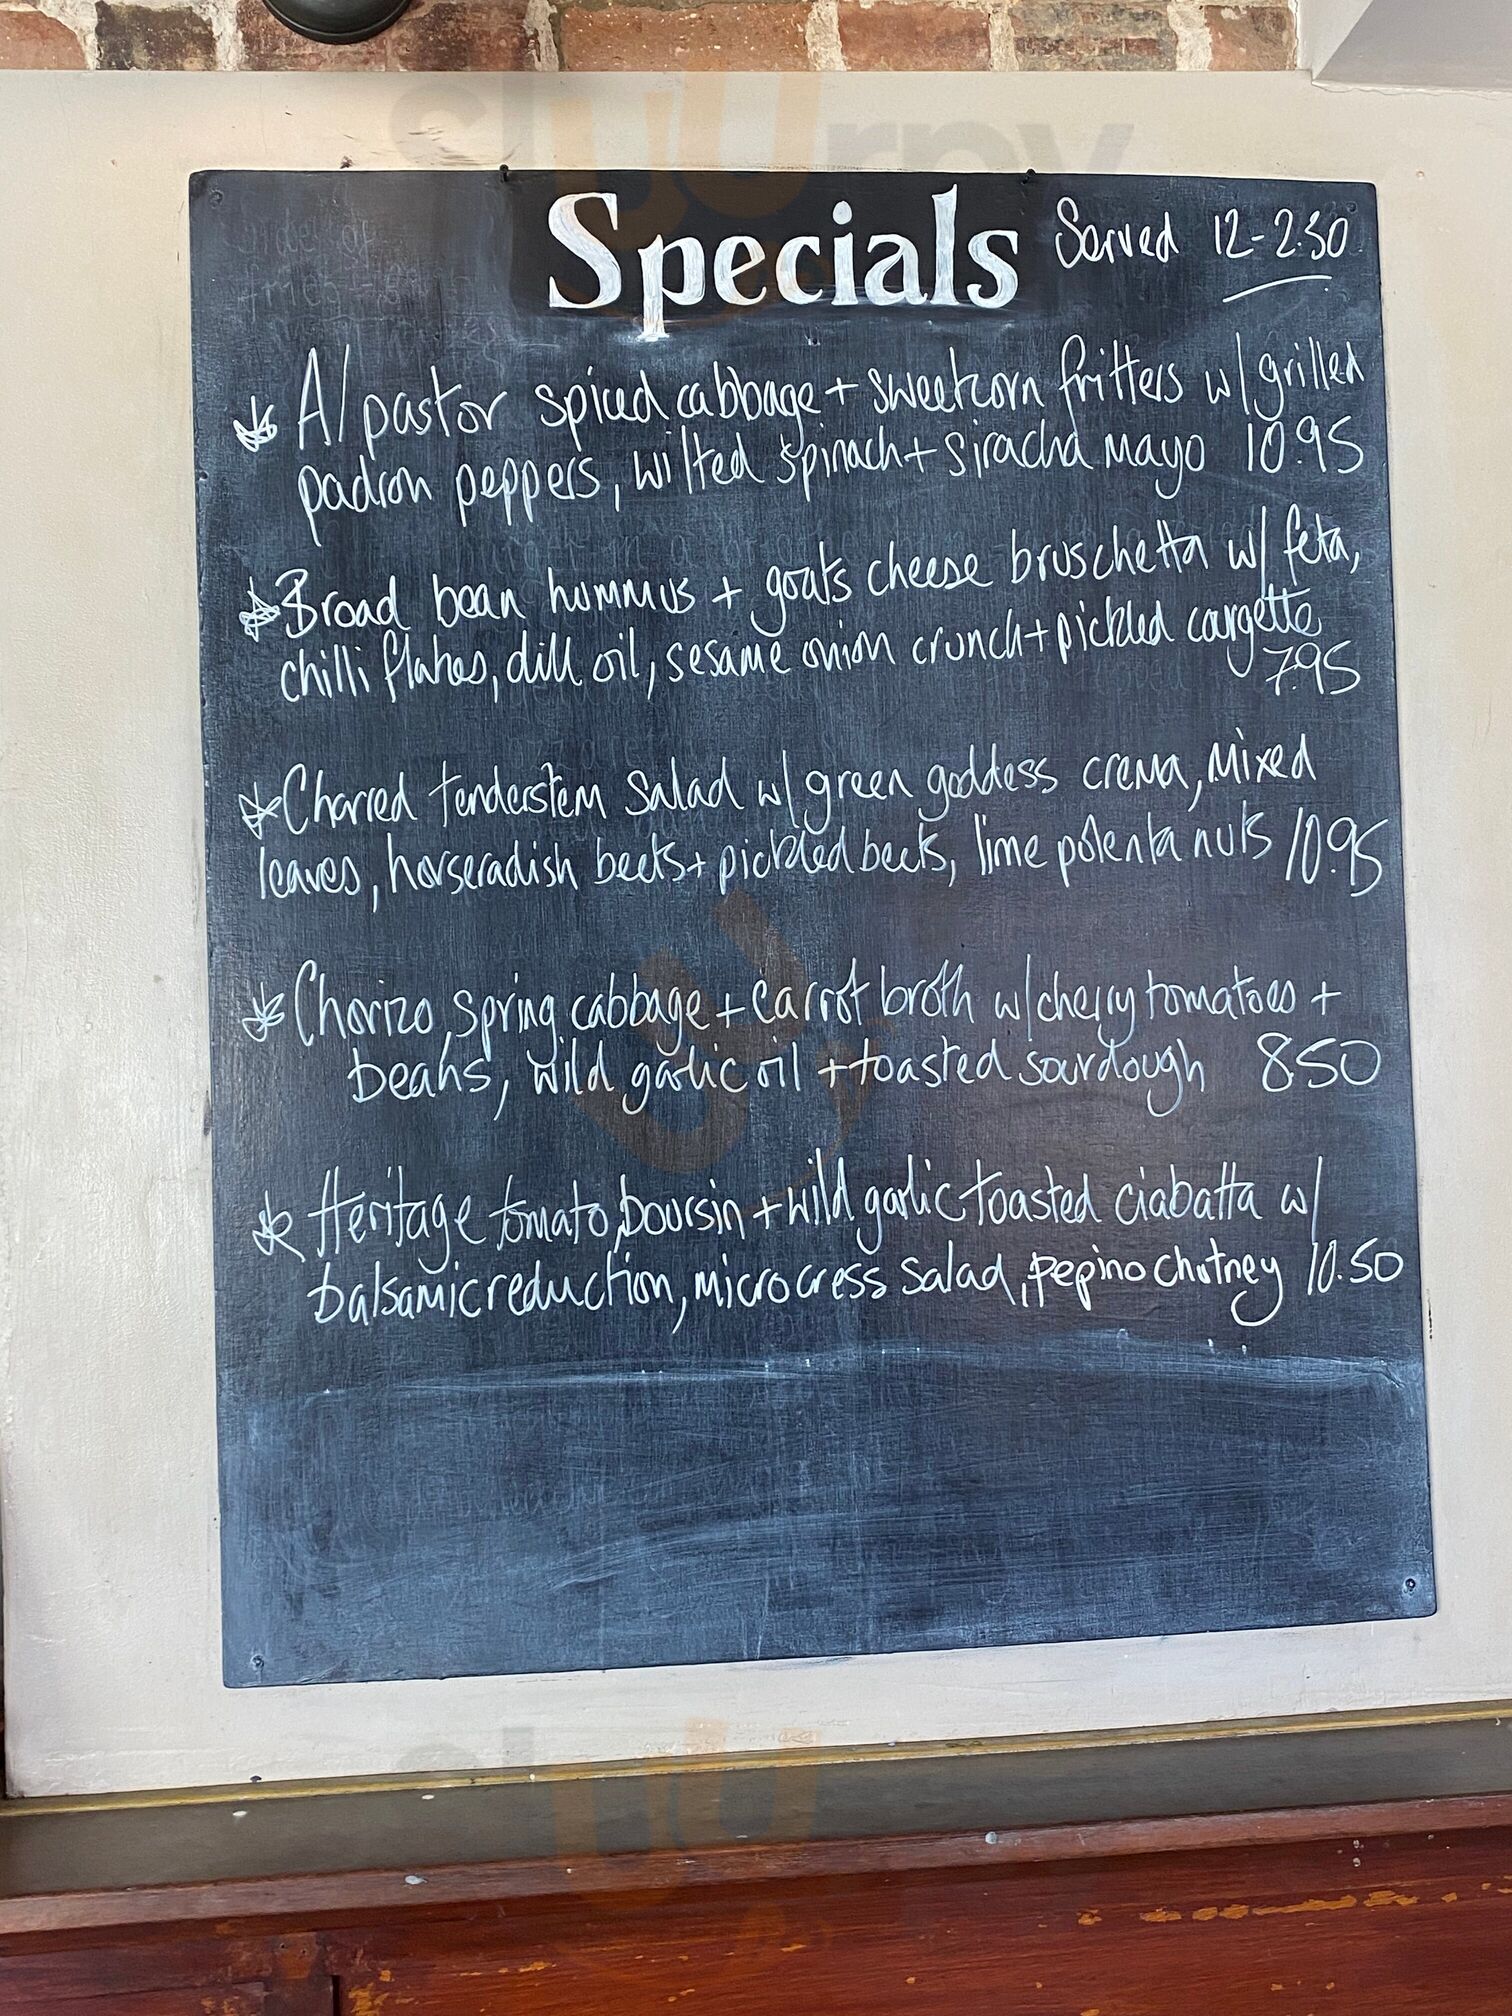 Specials Served 12-2.30
Al pastor spiced cabbage + sweetcorn fritters w/ grilled
padron peppers, wilted spinach + siracha mayo 10.95
Broad bean hummus + goats cheese bruschetta w/ feta,
chilli flakes, dill oil, sesame onion crunch + pickled courgette
7.95
Charred tenderstem salad w/ green goddess crema, mixed
leaves, horseradish beets + pickled beets, lime polenta nuts 10.95
Chorizo, spring cabbage + carrot broth w/ cherry tomatoes +
beans, wild garlic oil + toasted sourdough 8.50
Heritage tomato, boursin + wild garlic toasted ciabatta w/
balsamic reduction, microcress salad, pepino chutney 10.50